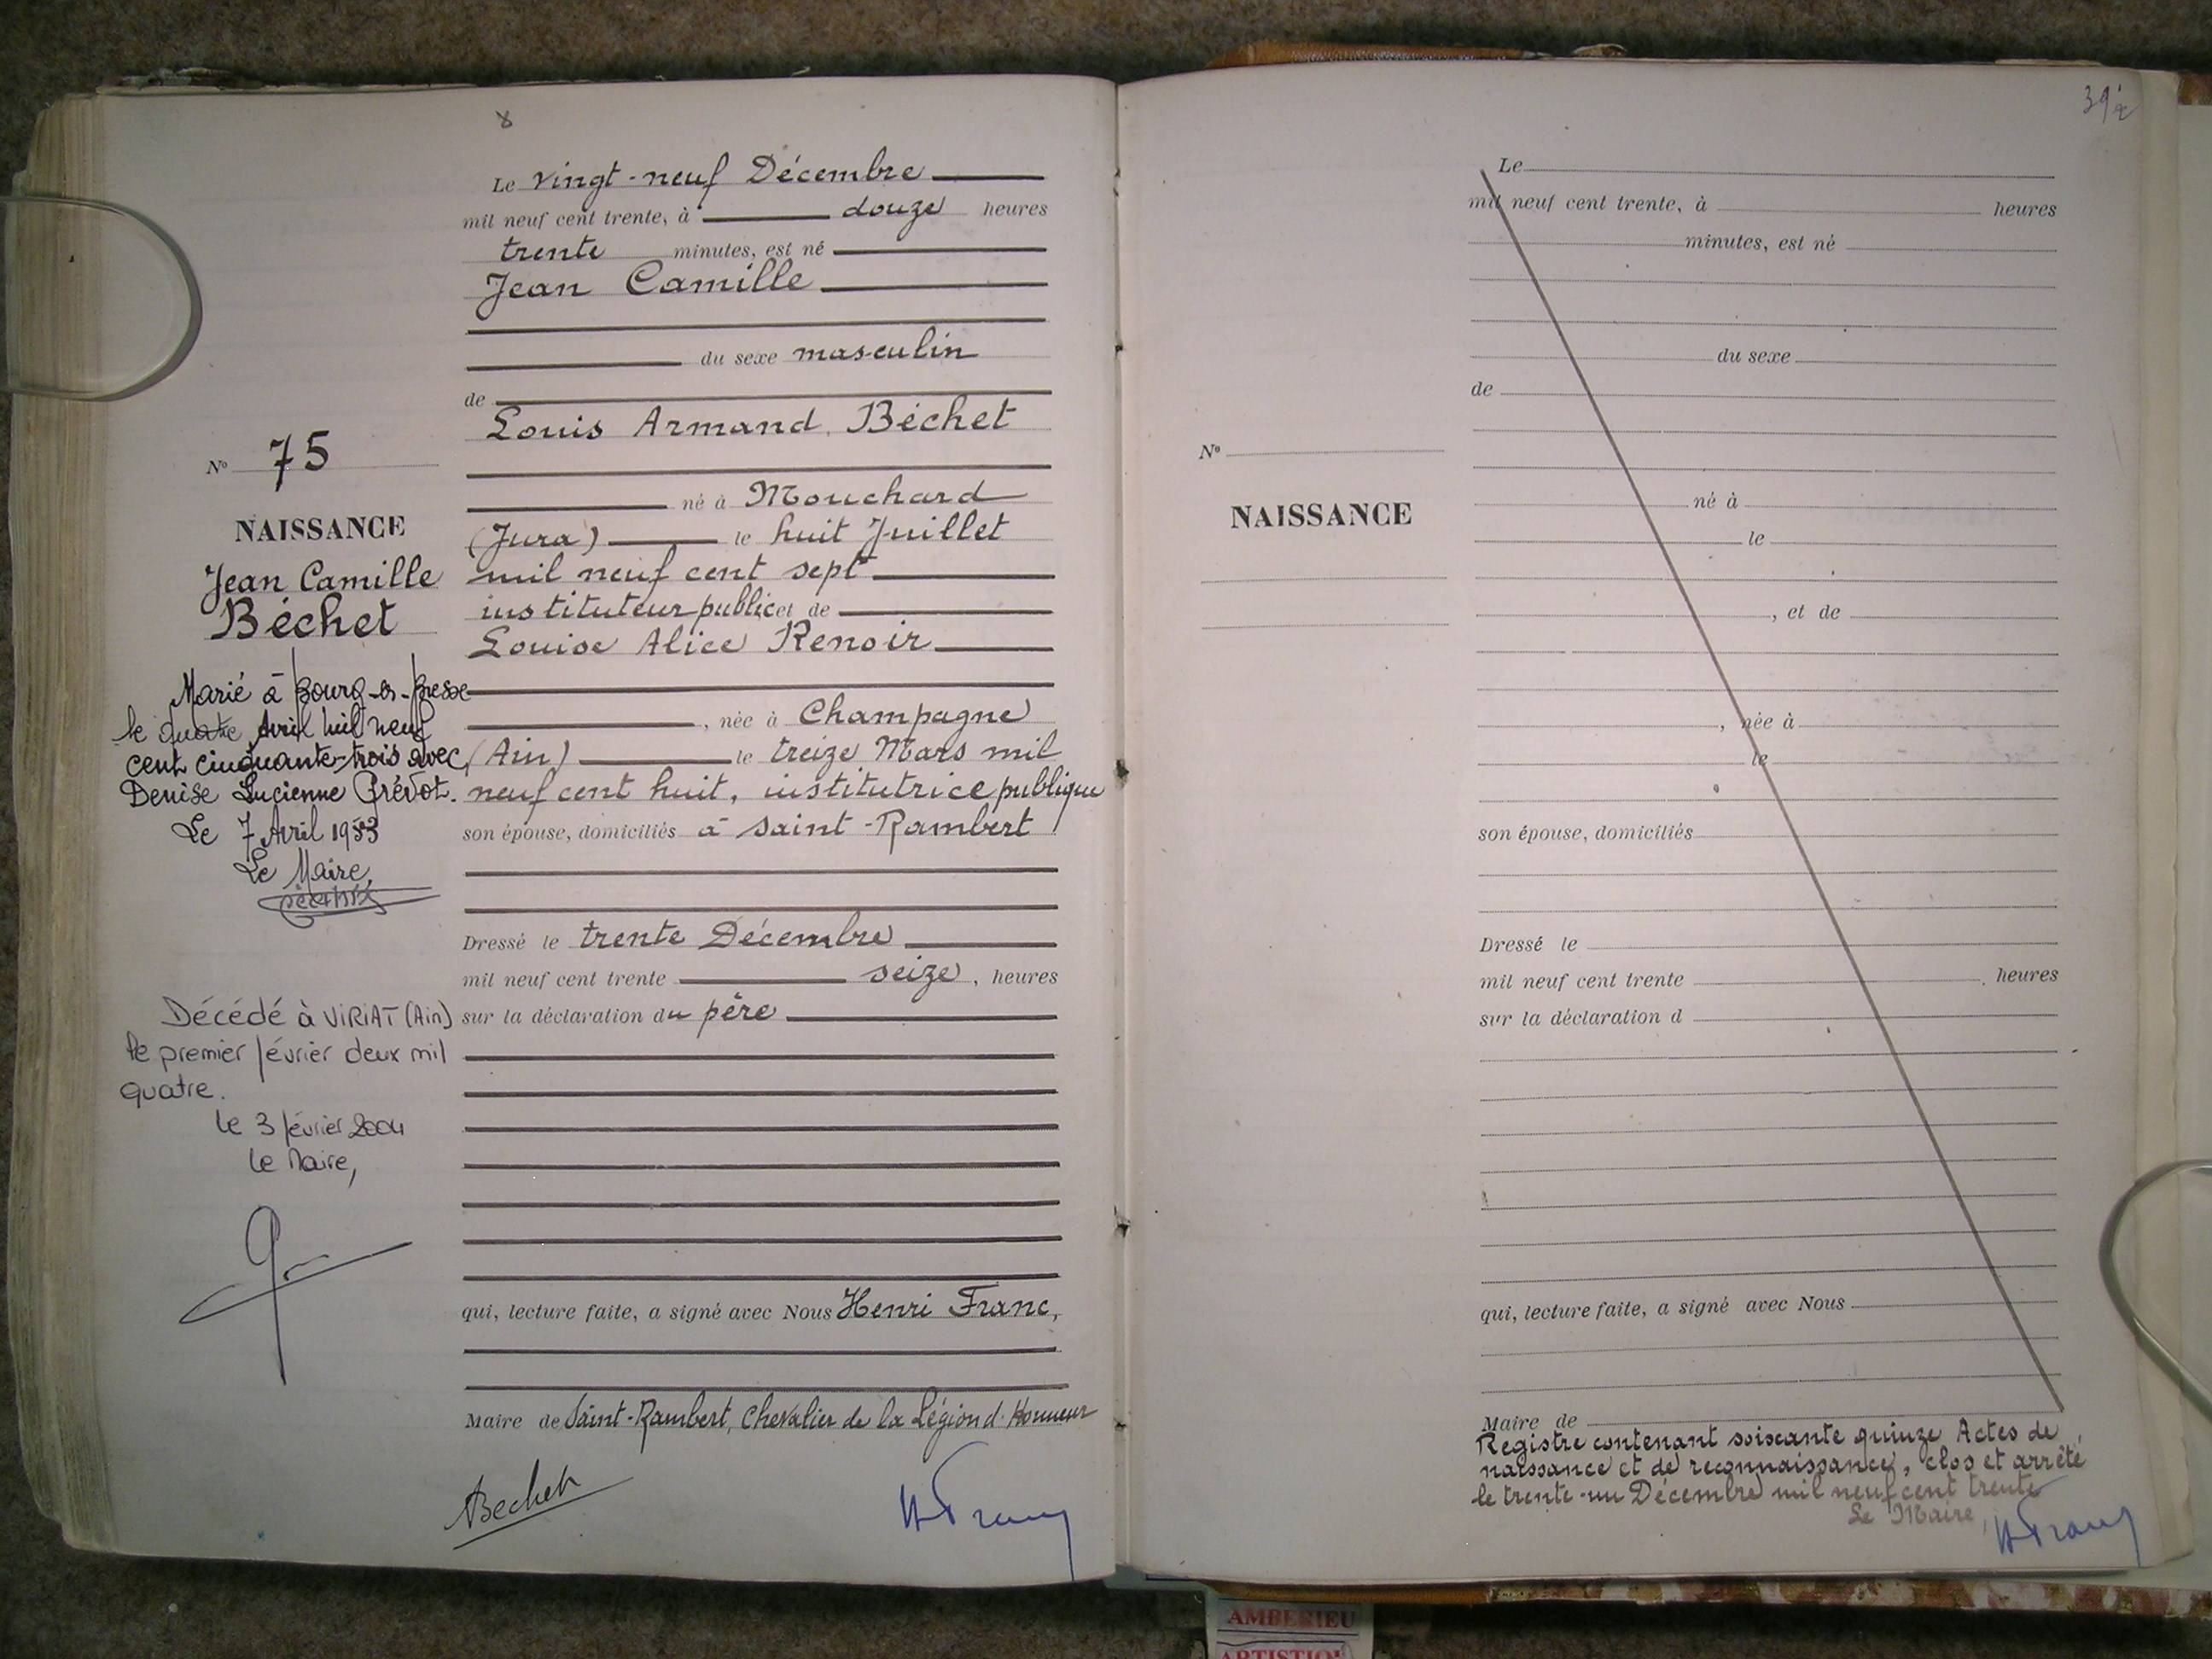 Le vingt-neuf Décembre
mil neuf cent trente, à douze heures
trente minutes, est né
Jean Camille
du sexe masculin
de
Louis Armand Béchet
né à Mouchard
(Jura) le huit Juillet
mil neuf cent sept
instituteur public et de
Louise Alice Renoir
, née à Champagne
(Ain) le treize Mars mil
neuf cent huit, institutrice publique
son épouse, domiciliés à Saint-Rambert
Dressé le trente Décembre
mil neuf cent trente seize, heures
sur la déclaration du père
qui, lecture faite, a signé avec Nous Henri Franc,
Maire de Saint-Rambert, Chevalier de la Légion d'Honneur
Bechet
H Franc
No 75
NAISSANCE
Jean Camille
Béchet
Marié à Bourg-en-Bresse
le quatre Avril mil neuf
cent cinquante-trois avec
Denise Lucienne Prévot.
Le 7 Avril 1953
Le Maire,
Décédé à VIRIAT (Ain)
le premier février deux mil
quatre.
le 3 février 2004
le Maire,
39
Le
mil neuf cent trente, à heures
minutes, est né
du sexe
de
No
NAISSANCE
né à
le
, et de
, née à
le
son épouse, domiciliés
Dressé le
mil neuf cent trente heures
sur la déclaration d
qui, lecture faite, a signé avec Nous
Maire de
Registre contenant soixante quinze Actes de
naissance et de reconnaissance, clos et arrêté
le trente-un Décembre mil neuf cent trente
Le Maire,
H Franc
AMBERIEU